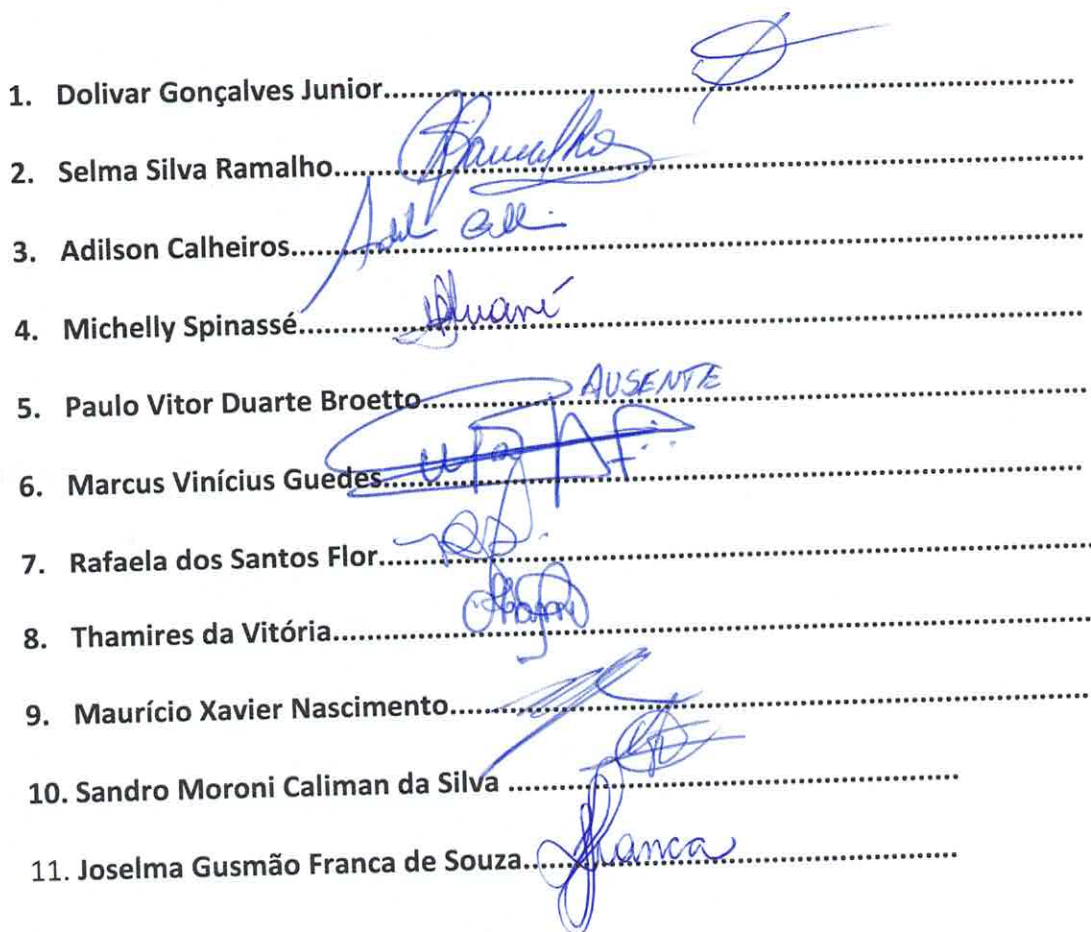 1. Dolivar Gonçalves Junior
2. Selma Silva Ramalho
3. Adilson Calheiros
4. Michelly Spinassé
5. Paulo Vitor Duarte Broetto AUSENTE
6. Marcus Vinícius Guedes
7. Rafaela dos Santos Flor
8. Thamires da Vitória
9. Maurício Xavier Nascimento
10. Sandro Moroni Caliman da Silva
11. Joselma Gusmão Franca de Souza